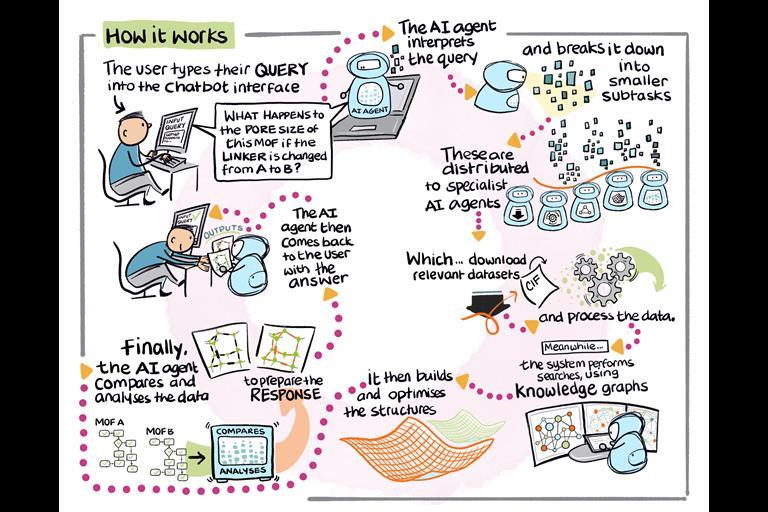 How it works
The user types their QUERY
into the chatbot interface
INPUT
QUERY
WHAT HAPPENS to
the PORE SIZE of
this MOF if the
LINKER is changed
from A to B?
AI AGENT
The AI agent
interprets
the query
and breaks it down
into
smaller
subtasks
These are
distributed
to specialist
AI agents
Which... download
relevant datasets
CIF
and process the data.
Meanwhile...
the system performs
searches, using
Knowledge graphs
it then builds
and optimises
the structures
Finally,
the AI agent
compares and
analyses the data
MOF A
MOF B
COMPARES
ANALYSES
to prepare the
RESPONSE
The AI
agent then
comes back
to the user
with the
answer
INPUT
QUERY
OUTPUTS